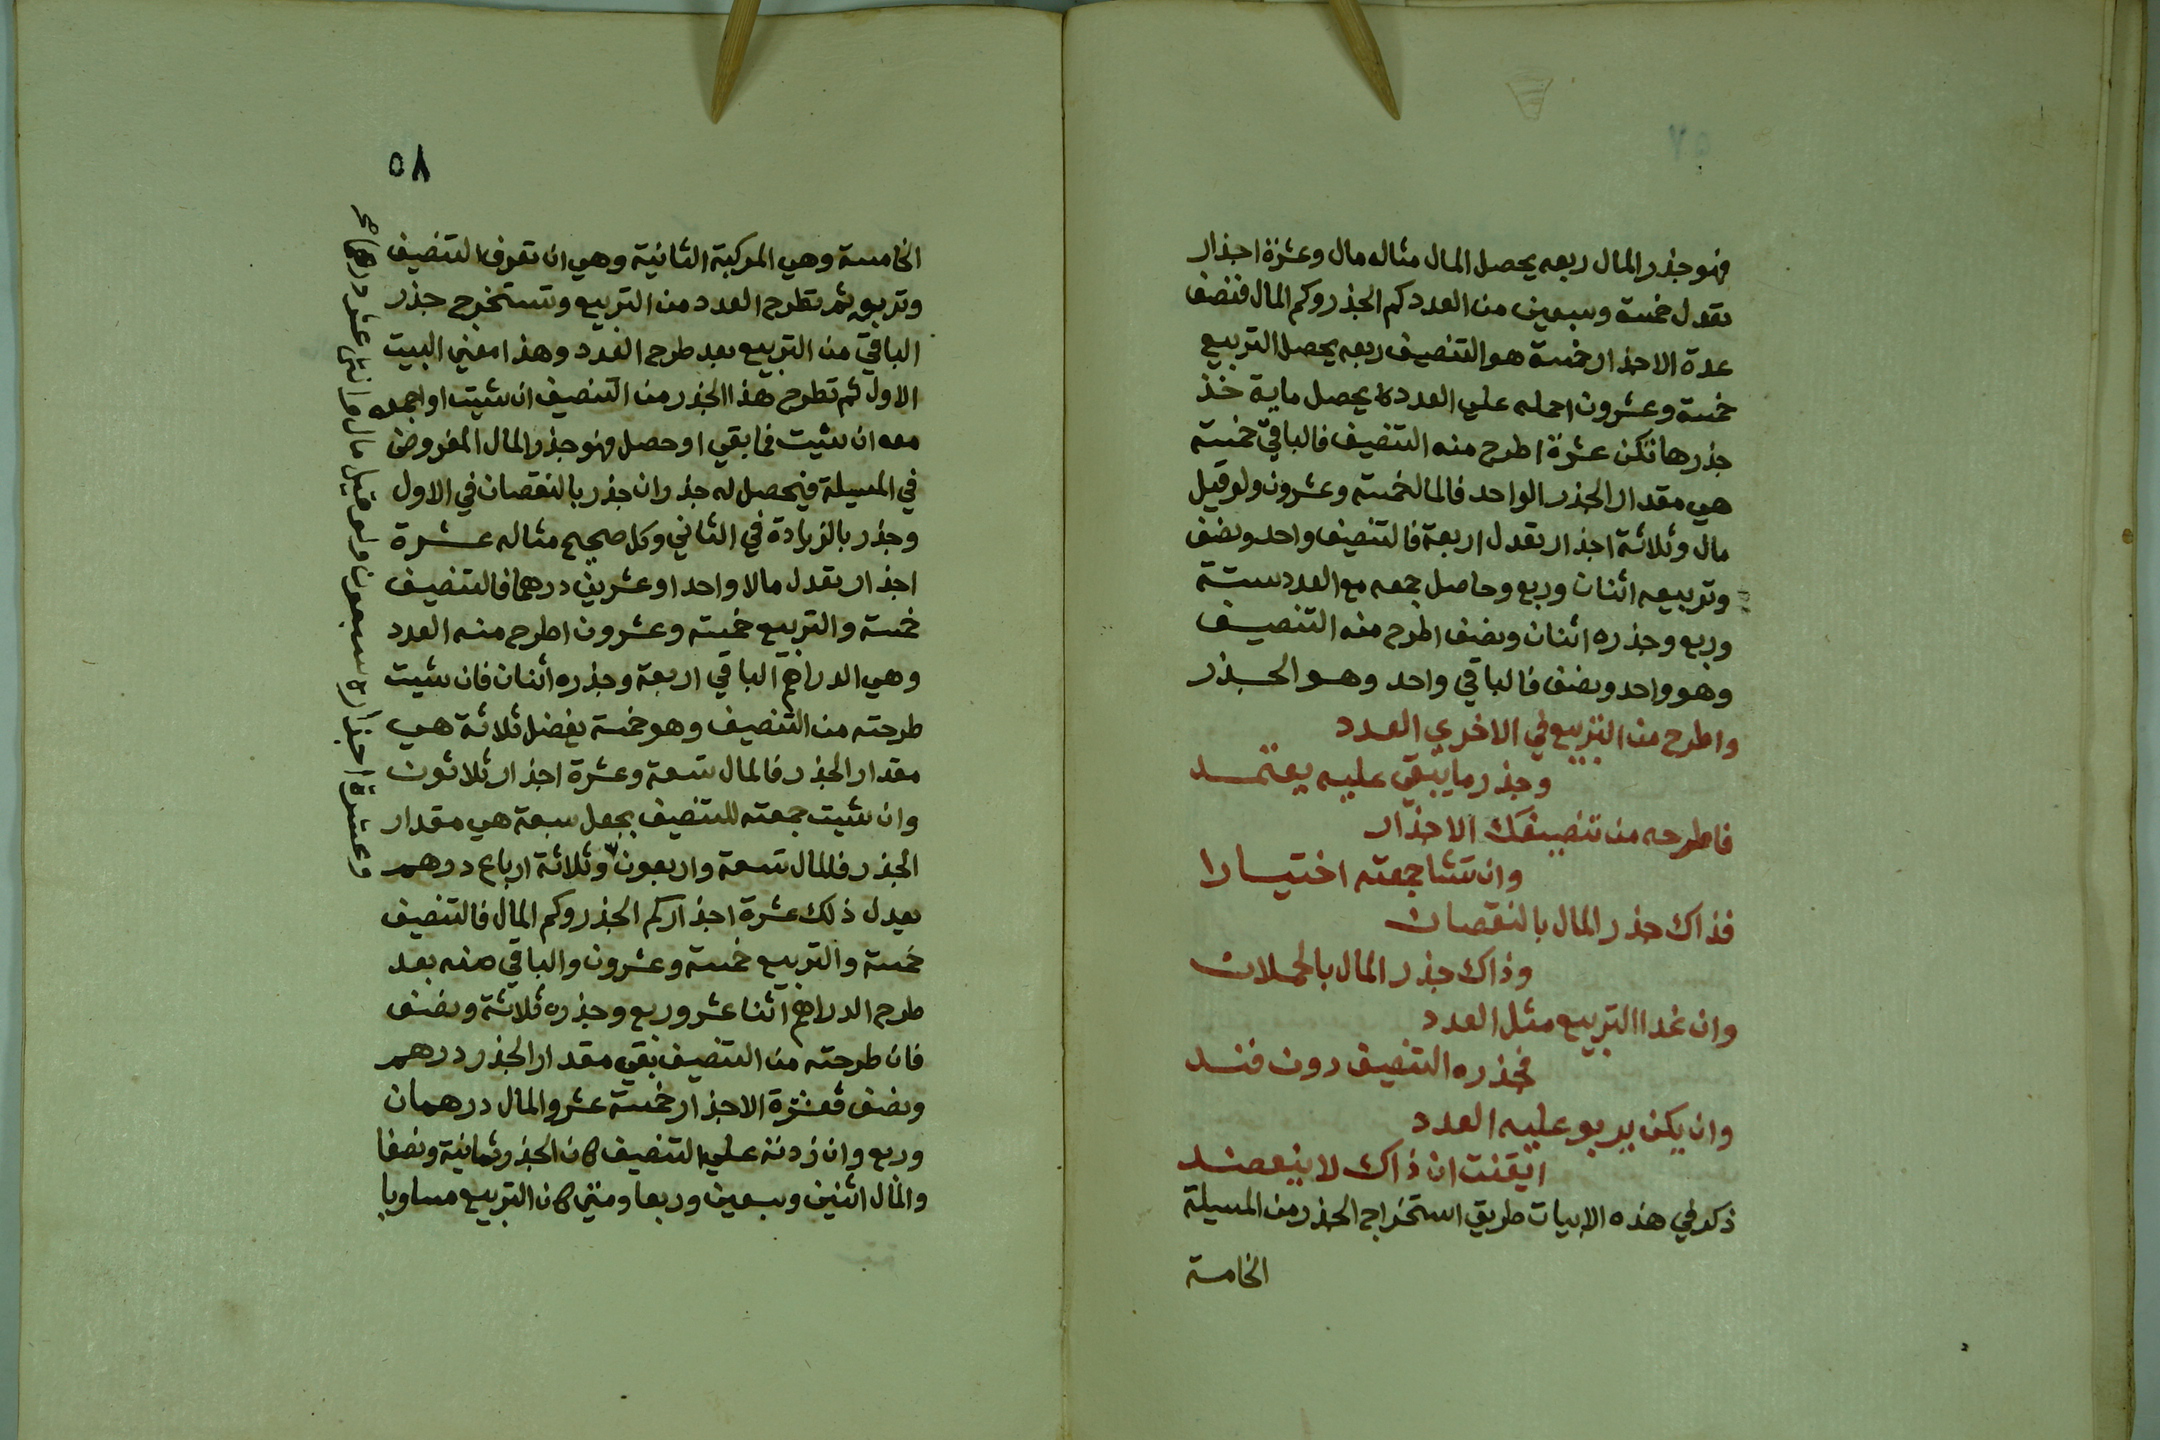 فهو جذر المال ربعه يحصل المال مثاله مال وعشرة اجذار
تعدل خمسة وسبعين من العدد كم الجذر وكم المال فنصف
عدة الاجذار خمسة هو التنصيف ربعه يحصل التربيع
خمسة وعشرون احمله علي العدد يحصل ماية خذ
جذرها تكن عشرة اطرح منه التنصيف فالباقي خمسة
هي مقدار الجذر الواحد فالمال خمسة وعشرون ولو قيل
مال وثلاثة اجذار تعدل اربعة فالتنصيف واحد ونصف
وتربيعه اثنان وربع وحاصل جمعه مع العدد ستة
وربع وجذره اثنان ونصف اطرح منه التنصيف
وهو واحد ونصف فالباقي واحد وهو الجذر
واطرح من التربيع في الاخري العدد
وجذر ما يبقي عليه يعتمد
فاطرحه من تنصيفك الاجذار
وان تشا جمعته اختيارا
فذاك جذر المال بالنقصان
وذاك جذر المال بالحملان
وان غدا التربيع مثل العدد
فجذره التنصيف دون فند
وان يكن يربو عليه العدد
ايقنت ان ذاك لا ينعضد
ذكر في هذه الابيات طريق استخراج الجذر من المسيلة
الخامسة
٥٨
الخامسة وهي المركبة الثانية وهي ان تعرف التنصيف
وتربعه ثم تطرح العدد من التربيع وتستخرج جذر
الباقي من التربيع بعد طرح العدد وهذا معني البيت
الاول ثم تطرح هذا الجذر من التنصيف ان شيت او اجمعه
معه ان شيت فما بقي او حصل فهو جذر المال المفروض
في المسيلة فيحصل له جذران جذر بالنقصان في الاول
وجذر بالزيادة في الثاني وكل صحيح مثاله عشرة
اجذار تعدل مالا واحدا وعشرين درهما فالتنصيف
خمسة والتربيع خمسة وعشرون اطرح منه العدد
وهي الدراهم الباقي اربعة وجذره اثنان فان شيت
طرحته من التنصيف وهو خمسة يفضل ثلاثة هي
مقدار الجذر فالمال تسعة وعشرة اجذار ثلاثون
وان شيت جمعته للتنصيف يجعل سبعة هي مقدار
الجذر فالمال تسعة واربعون وثلاثة ارباع درهم
يعدل ذلك عشرة اجذار كم الجذر وكم المال فالتنصيف
خمسة والتربيع خمسة وعشرون والباقي منه بعد
طرح الدراهم اثنا عشر وربع وجذره ثلاثة ونصف
فان طرحته من التنصيف بقي مقدار الجذر درهم
ونصف فعشرة الاجذار خمسة عشر والمال درهمان
وربع وان زدته علي التنصيف كان الجذر ثمانية ونصفا
والمال اثنين وسبعين وربعا ومتي كان التربيع مساويا
وعشرة اجذاره سبعون ولو قيل مال واثني عشر درهما